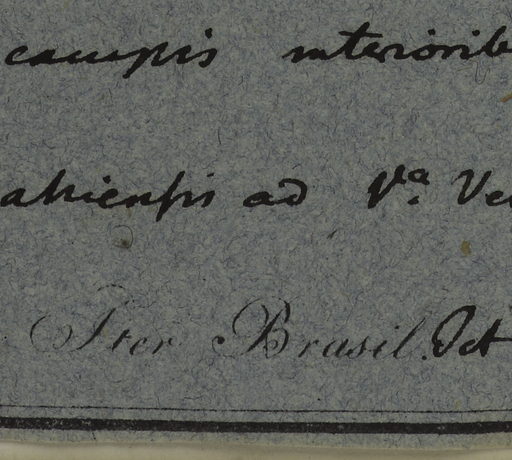 campis interiorib
ahiensis ad Va. Ve
Iter Brasil. Oct